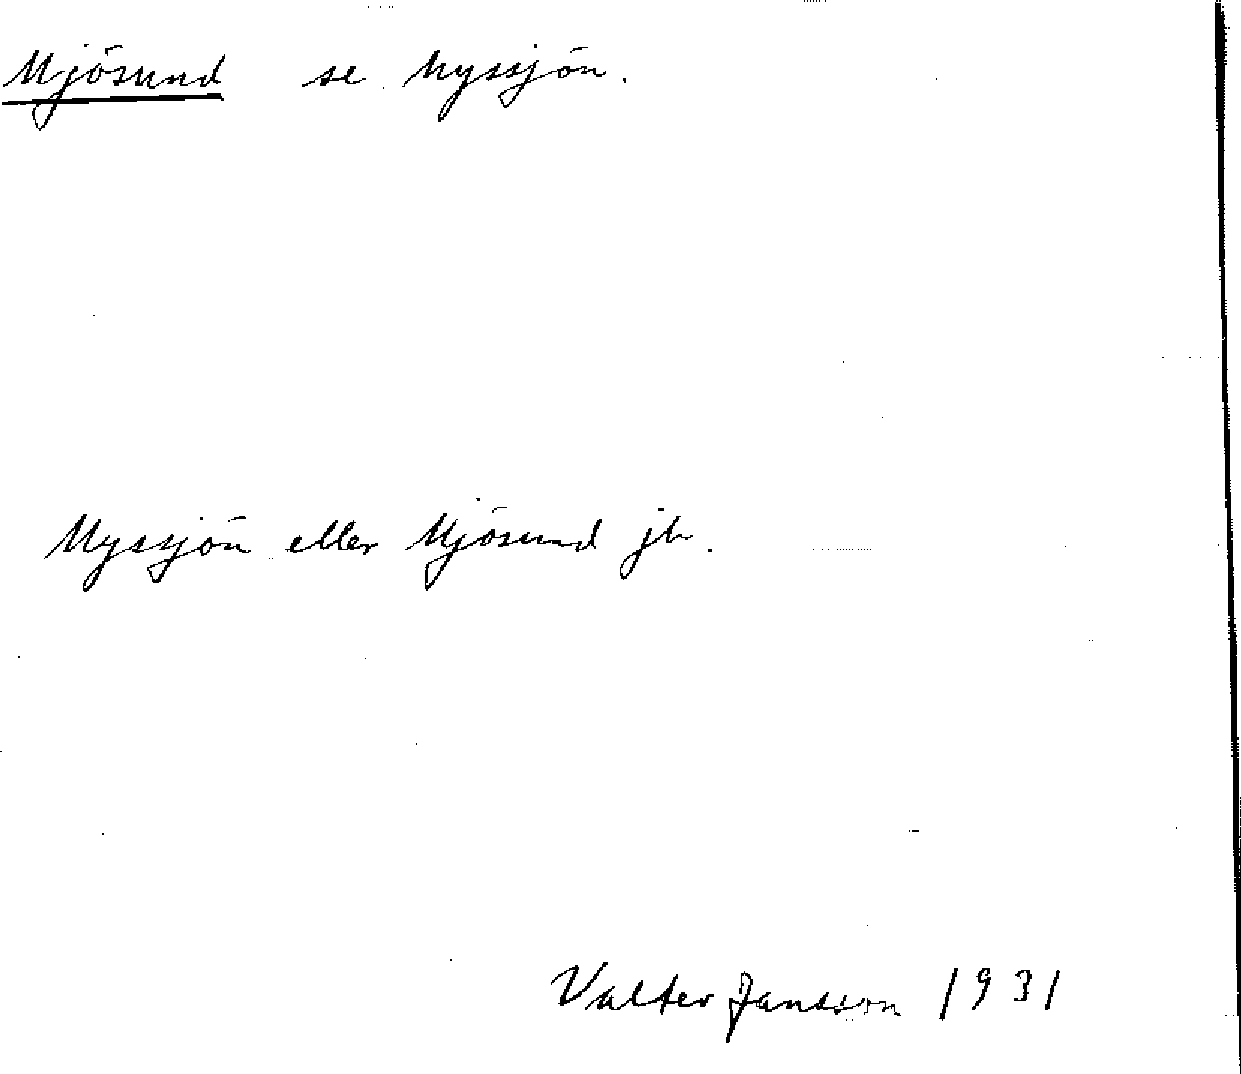 Mjösund se Myssjön.
Myssjön eller Mjösund jb.
Valter Jansson 1931